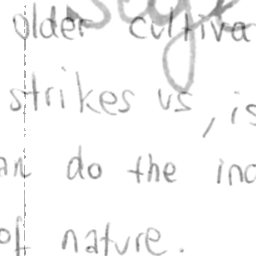 older cultiva
strikes us, is
an do the inc
of nature.